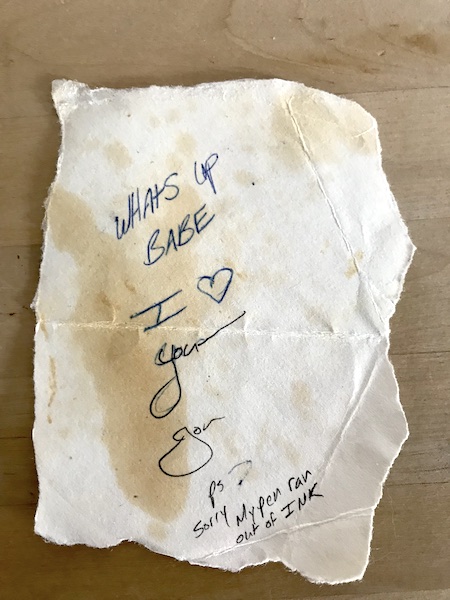 WHATS UP
BABE
I ♡
you
you
ps
sorry My pen ran
out of INK